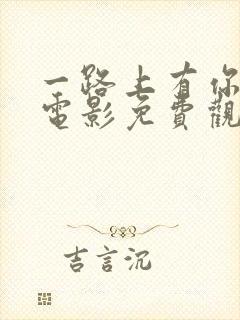 一路上有你
電影免費觀
吉言沉